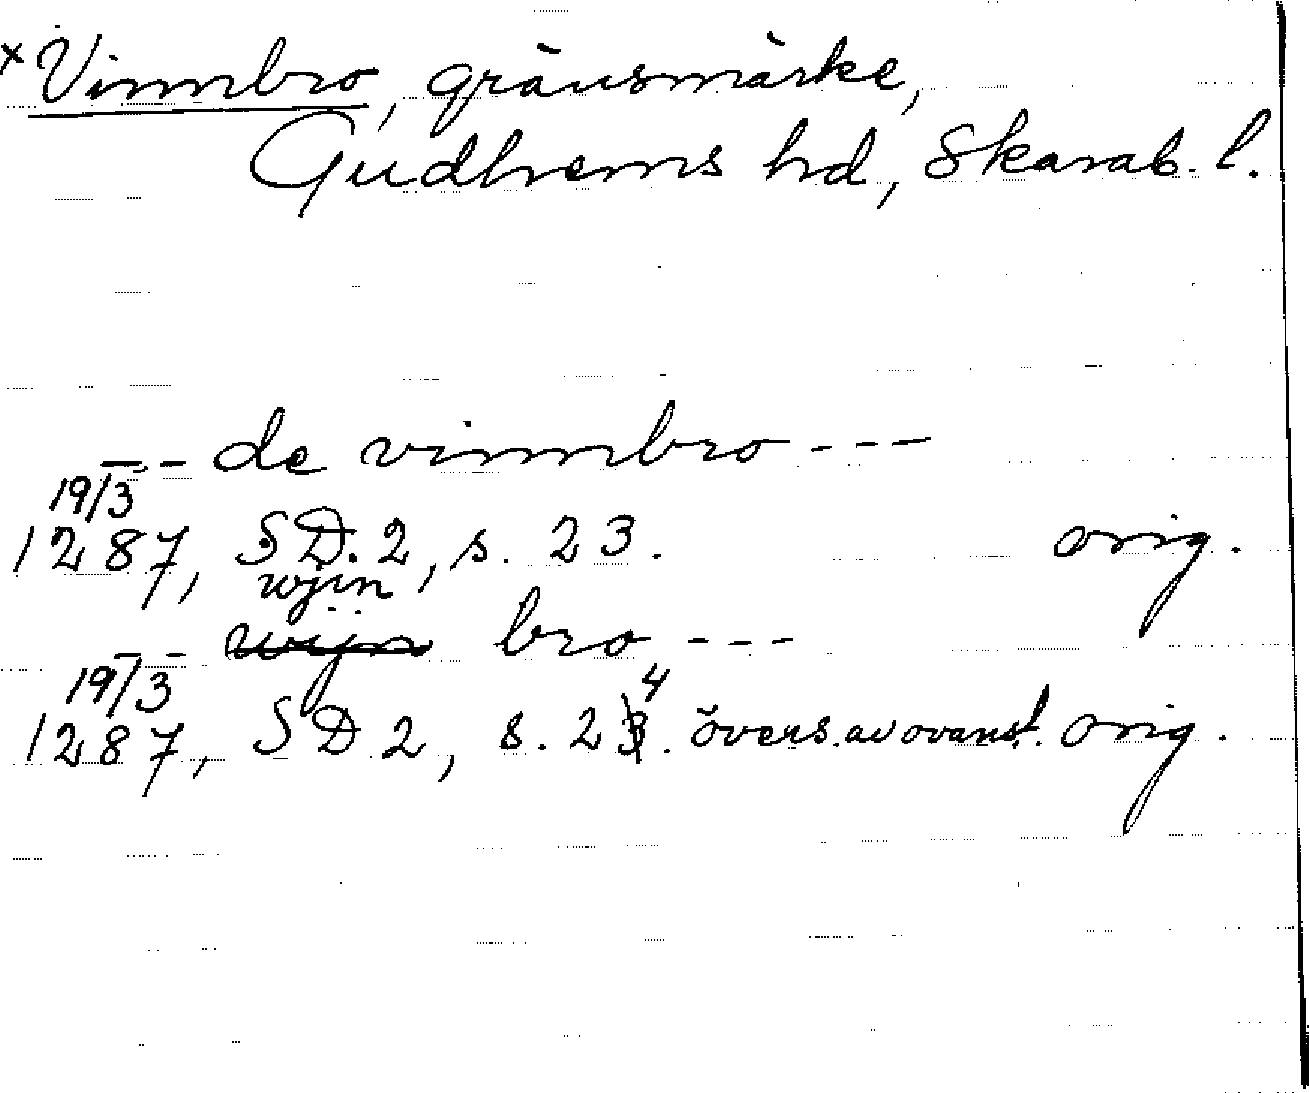 x Vinnbro, gränsmärke,
Gudhems hd, Skarab. l.
--- de vinnbro ---
19/3
1287, SD. 2, s. 23. orig.
wjin
-- wijn bro ---
19/3 4
1287, SD 2, s. 23. övers. av ovanst. orig.